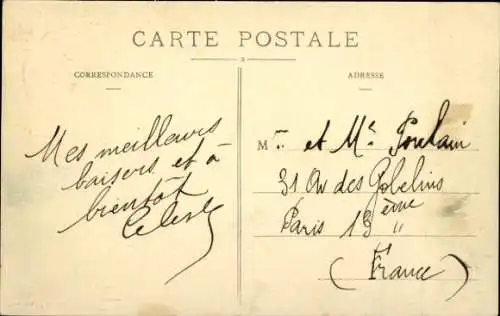 CARTE POSTALE
CORRESPONDANCE
ADRESSE
Mes meilleurs
baisers et à
bientôt
Celeste
Mr et Me Poulain
31 Av des Gobelins
Paris 13ème
(France)